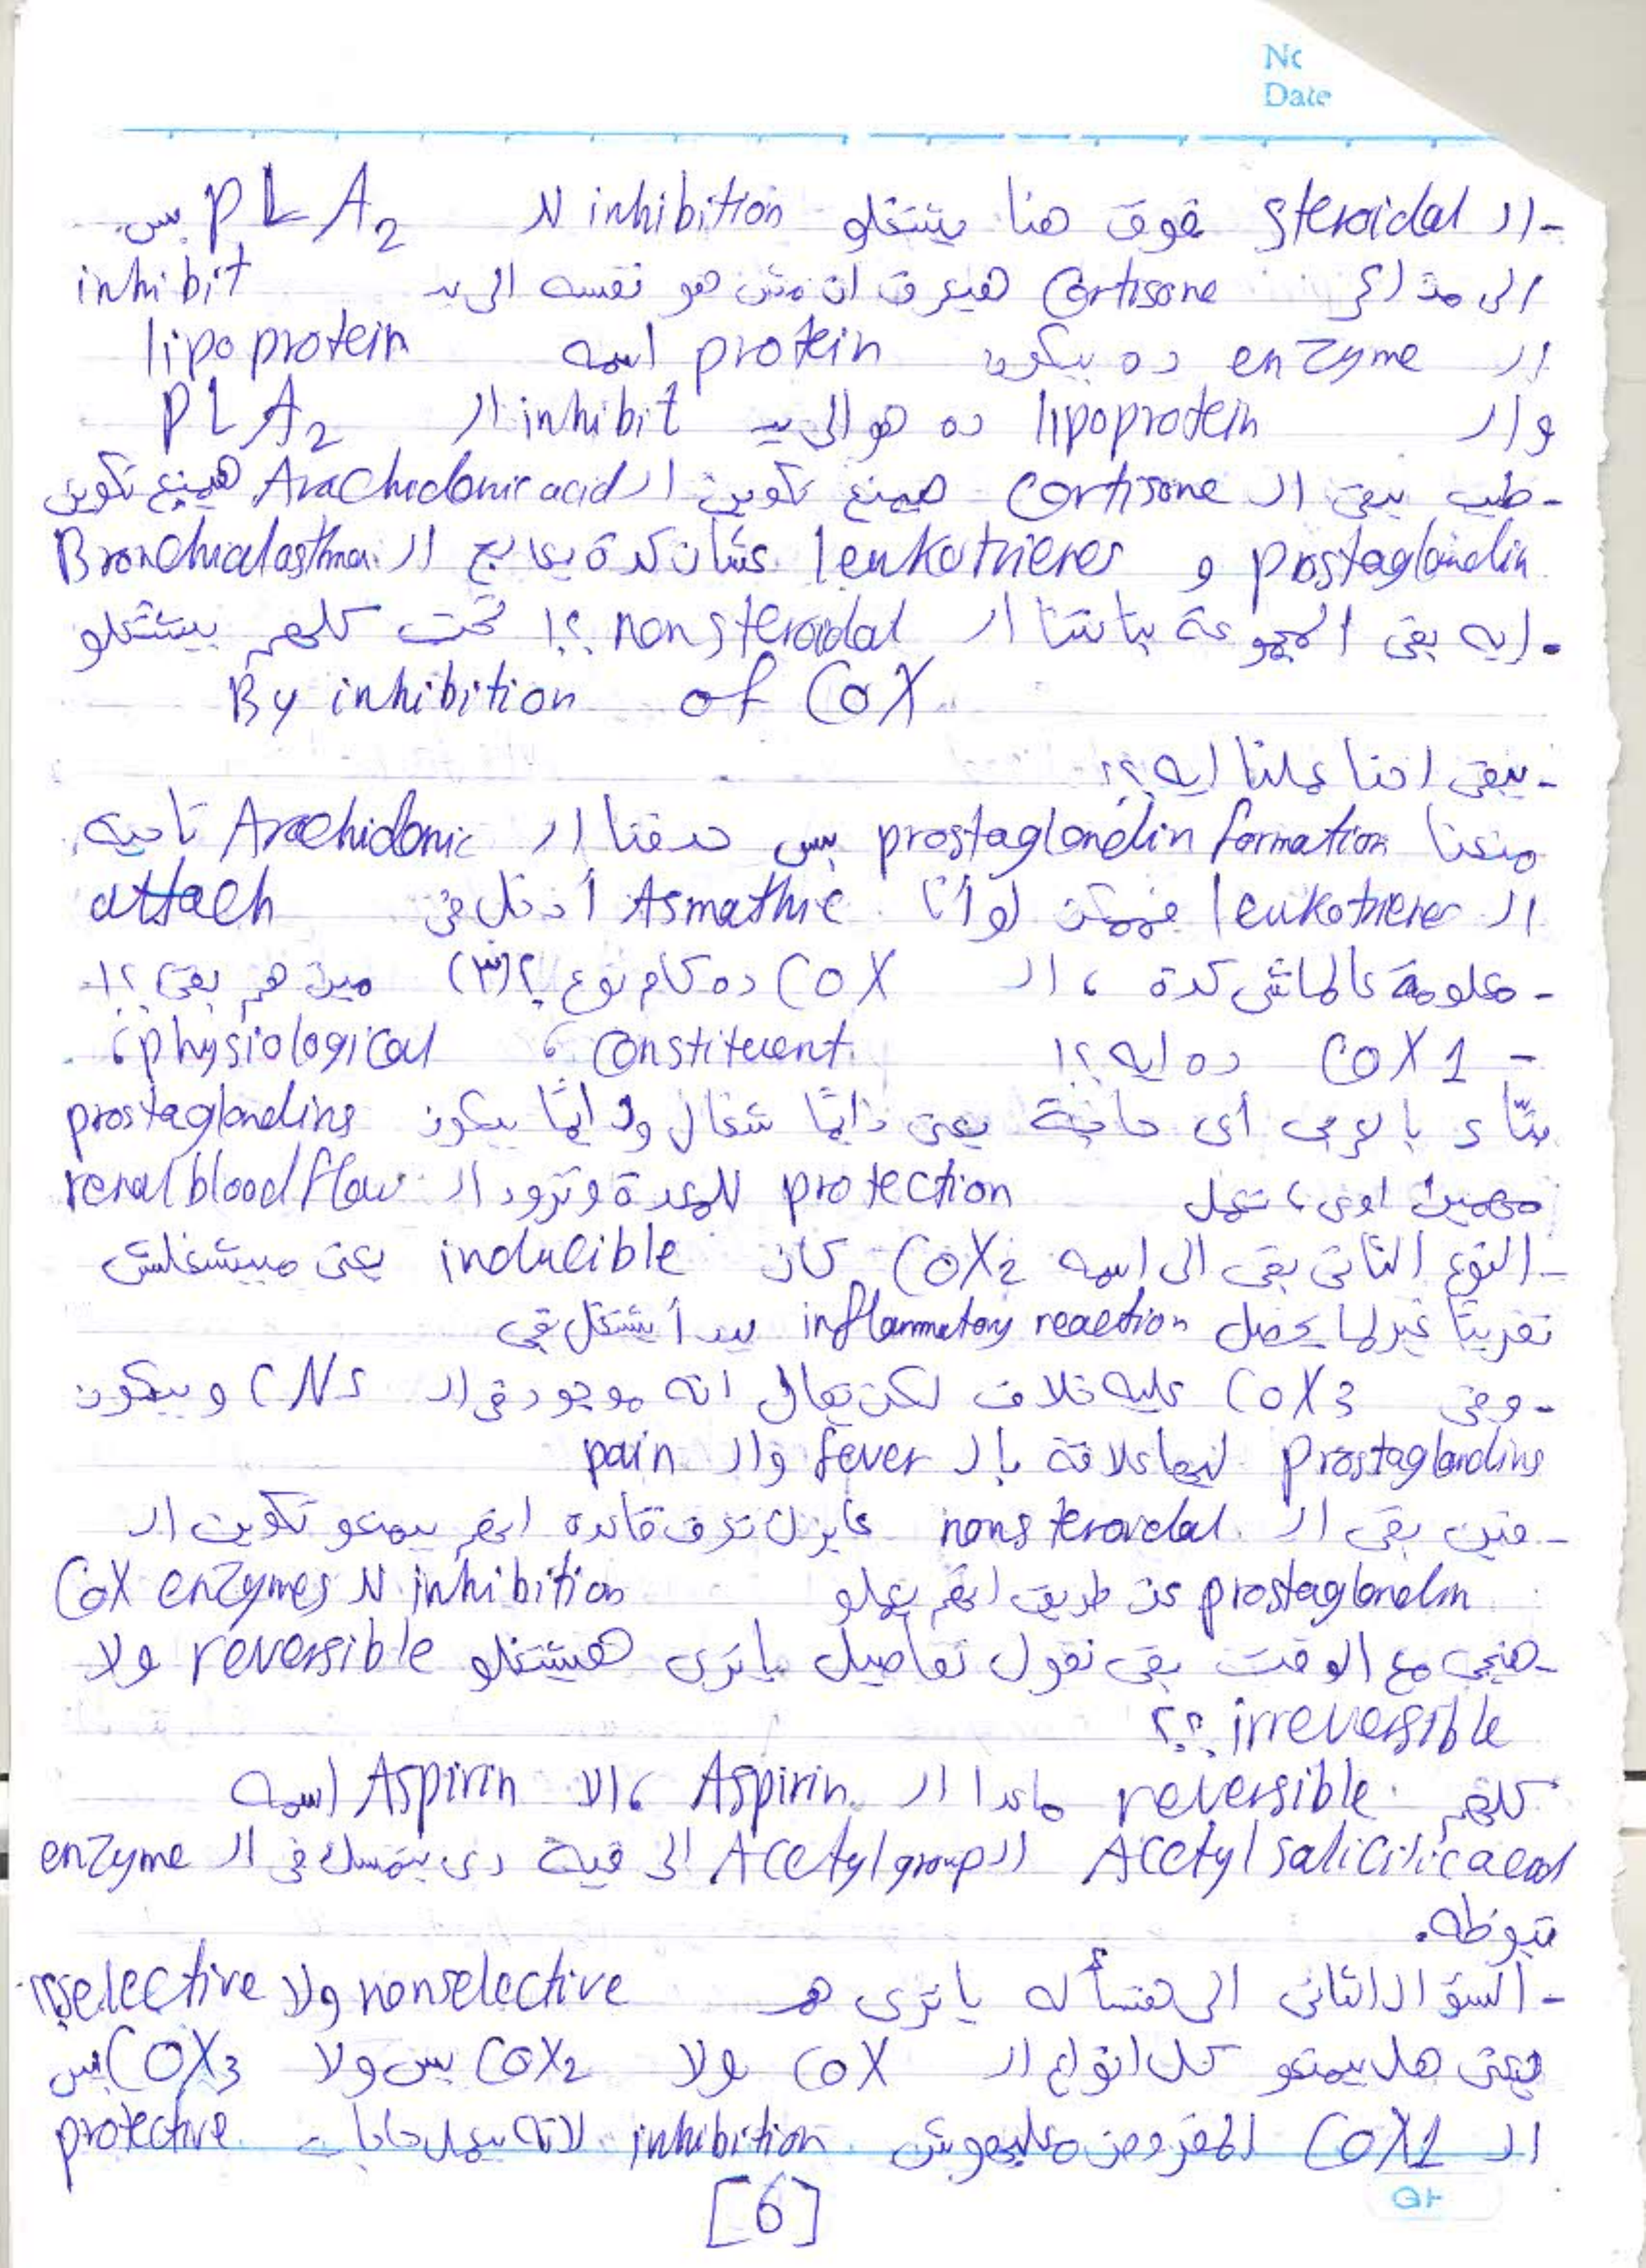 No
Date
- ال steroidal فوق هنا بيشتغلو inhibition لـ PLA2 بس
الى مذاكر Cortisone هيعرف ان مش هو نفسه الى بـ inhibit
ال enzyme ده بيكون protein اسمه lipoprotein
وال lipoprotein ده هو الى بيـ inhibit ال PLA2
- طيب يبقى ال Cortisone هيمنع تكوين ال Arachidonic acid هيمنع تكوين
prostaglandin و leukotrienes عشان كدة بيعالج ال Bronchial asthma
- إيه بقى المجموعة بتاعتنا ال nonsteroidal ؟! تحت كلهم بيشتغلو
By inhibition of COX
- يبقى احنا عملنا إيه ؟؟
منعنا prostaglandin formation بس حدفنا ال Arachidonic ناحية
ال leukotrienes فممكن لو أنا Asmathic أدخل في attach
- معلومة عالماشى كدة ، ال COX ده كام نوع ؟ (٣) مين هم بقى ؟!
- COX 1 ده ايه ؟! Constituent ، physiological ،
شاء يا بوى أى حاجة يعنى دايمًا شغال ودايمًا بيكون prostaglandins
مهمين اوى ، تعمل protection للمعدة وتزود ال renal blood flow
- النوع التانى بقى الى اسمه COX2 كان inducible يعنى مبيشتغلش
تقريبًا غير لما يحصل inflammatory reaction يبدأ يشتغل بقى
- وفى COX3 عليه خلاف لكن يقال انه موجود في ال CNS وبيكون
Prostaglandins ليها علاقة بال fever وال pain
- فين بقى ال nonsteroidal عايزك تعرف قاعدة انهم بيمنعو تكوين ال
prostaglandin عن طريق انهم يعملو inhibition لـ COX enzymes
- هنيجى مع الوقت بقى نقول تفاصيل يا ترى هيشتغلو reversible ولا
irreversible ؟؟
كلهم reversible ماعدا ال Aspirin ، الا Aspirin اسمه
Acetyl salicilic acid ال Acetyl group الى فيه دى بتمسك في ال enzyme
تبوظه.
- السؤال التانى الى هنسأله يا ترى هم nonselective ولا selective ؟؟
يعنى هل بيمنعو كل انواع ال COX ولا COX2 بس ولا COX3 بس
ال COX1 المفروض ميعملهوش inhibition لانه بيعمل حاجات protective
[6]